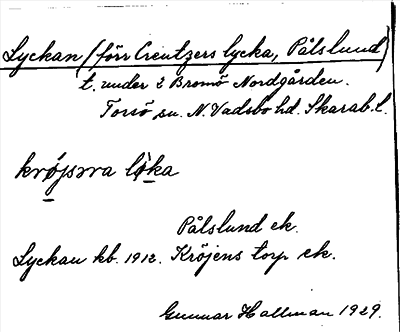 Lyckan (förr Creutzers lycka, Pålslund)
t. under 2 Bromö Nordgården.
Torsö sn. N. Vadsbo hd. Skarab. l.
krøjsɿra lỳka
Pålslund ek.
Lyckan kb. 1912. Kröjens torp ek.
Gunnar Hallman 1929.